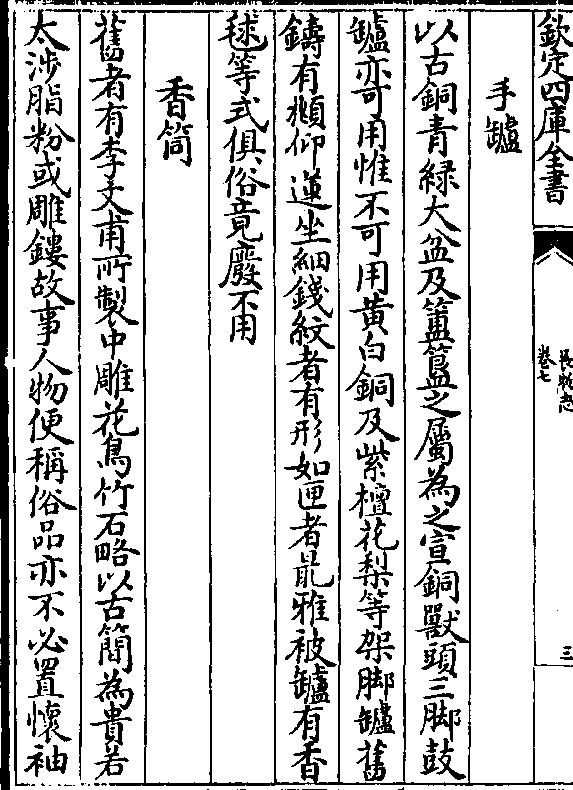 欽定四庫全書
長物志
卷七
三
手罏
以古銅青綠大盆及簠簋之屬為之宣銅獸頭三脚鼓
罏亦可用惟不可用黃白銅及紫檀花梨等架脚罏舊
鑄有頫仰蓮坐細錢紋者有形如匣者最雅被罏有香
毬等式俱俗竟廢不用
香筒
舊者有李文甫所製中雕花鳥竹石略以古簡為貴若
太涉脂粉或雕鏤故事人物便稱俗品亦不必置懷袖